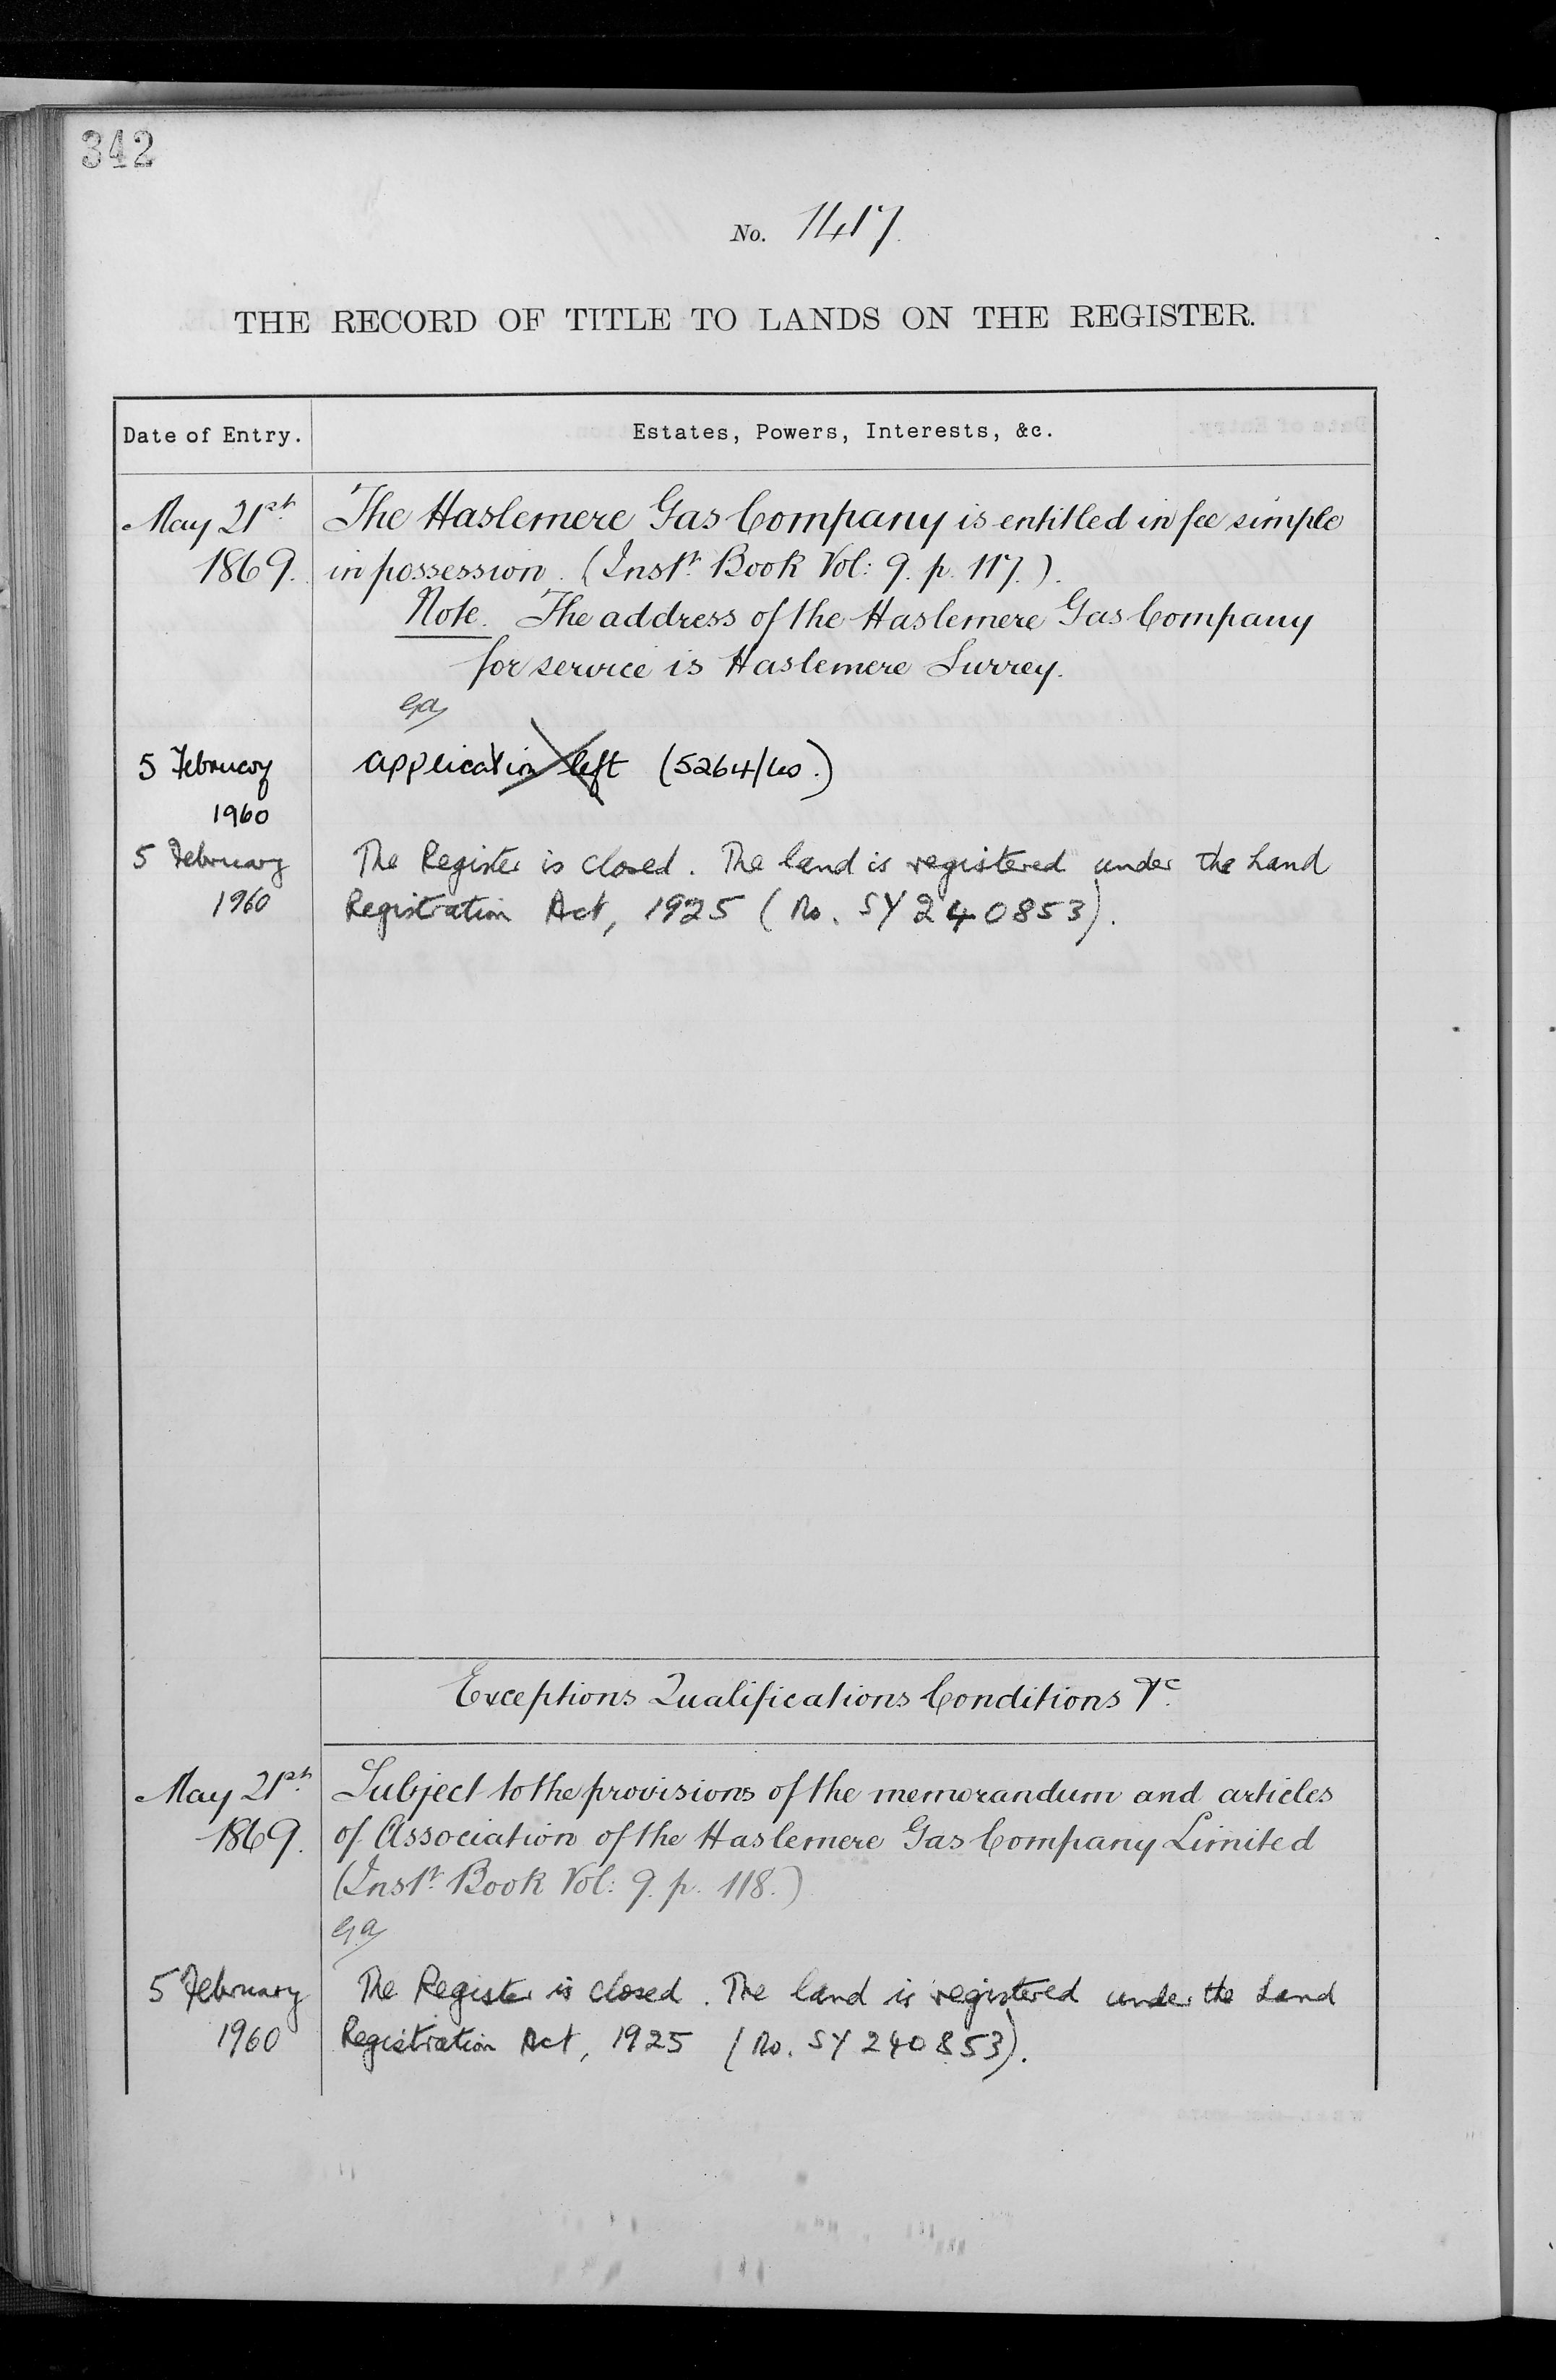 342
No. 1417.
THE RECORD OF TITLE TO LANDS ON THE REGISTER.
Date of Entry. Estates, Powers, Interests, &c.
May 21st The Haslemere Gas Company is entitled in fee simple
1869. in possession. (Inst. Book Vol: 9. p. 117.).
Note. The address of the Haslemere Gas Company
for service is Haslemere Surrey.
5 February Application left (5264/60.)
1960
5 February The Register is closed. The land is registered under the Land
1960 Registration Act, 1925 (No. SY 240853).
Exceptions Qualifications Conditions &c.
May 21st Subject to the provisions of the memorandum and articles
1869. of Association of the Haslemere Gas Company Limited
(Inst. Book Vol: 9. p. 118.)
5 February The Register is closed. The land is registered under the Land
1960 Registration Act, 1925 (No. SY 240853).